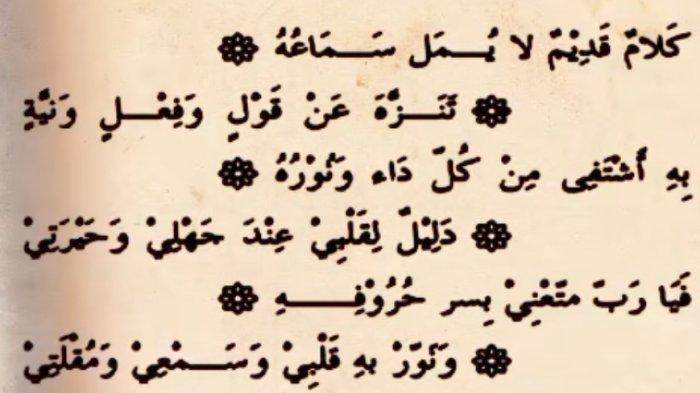 كَلَامٌ قَدِيْمٌ لا يُـــمَل سَـــمَاعُهُ ۞
۞ تَنَـــزَّهَ عَنْ قَوْلٍ وَفِعْـــلٍ وَنيَّةٍ
بِهِ أَشْتَفِى مِنْ كُلّ دَاء وَنُوْرُهُ ۞
۞ دَلِيْلٌ لِقَلْبِيْ عِنْدَ جَهْلِيْ وَحَيْرَتِيْ
فَيَا رَبّ متّعْنِيْ بِسر حُرُوْفِـــــهِ ۞
۞ وَنَوّرْ بهِ قَلْبِيْ وَسَـــمْعِيْ وَمُقْلَتِيْ